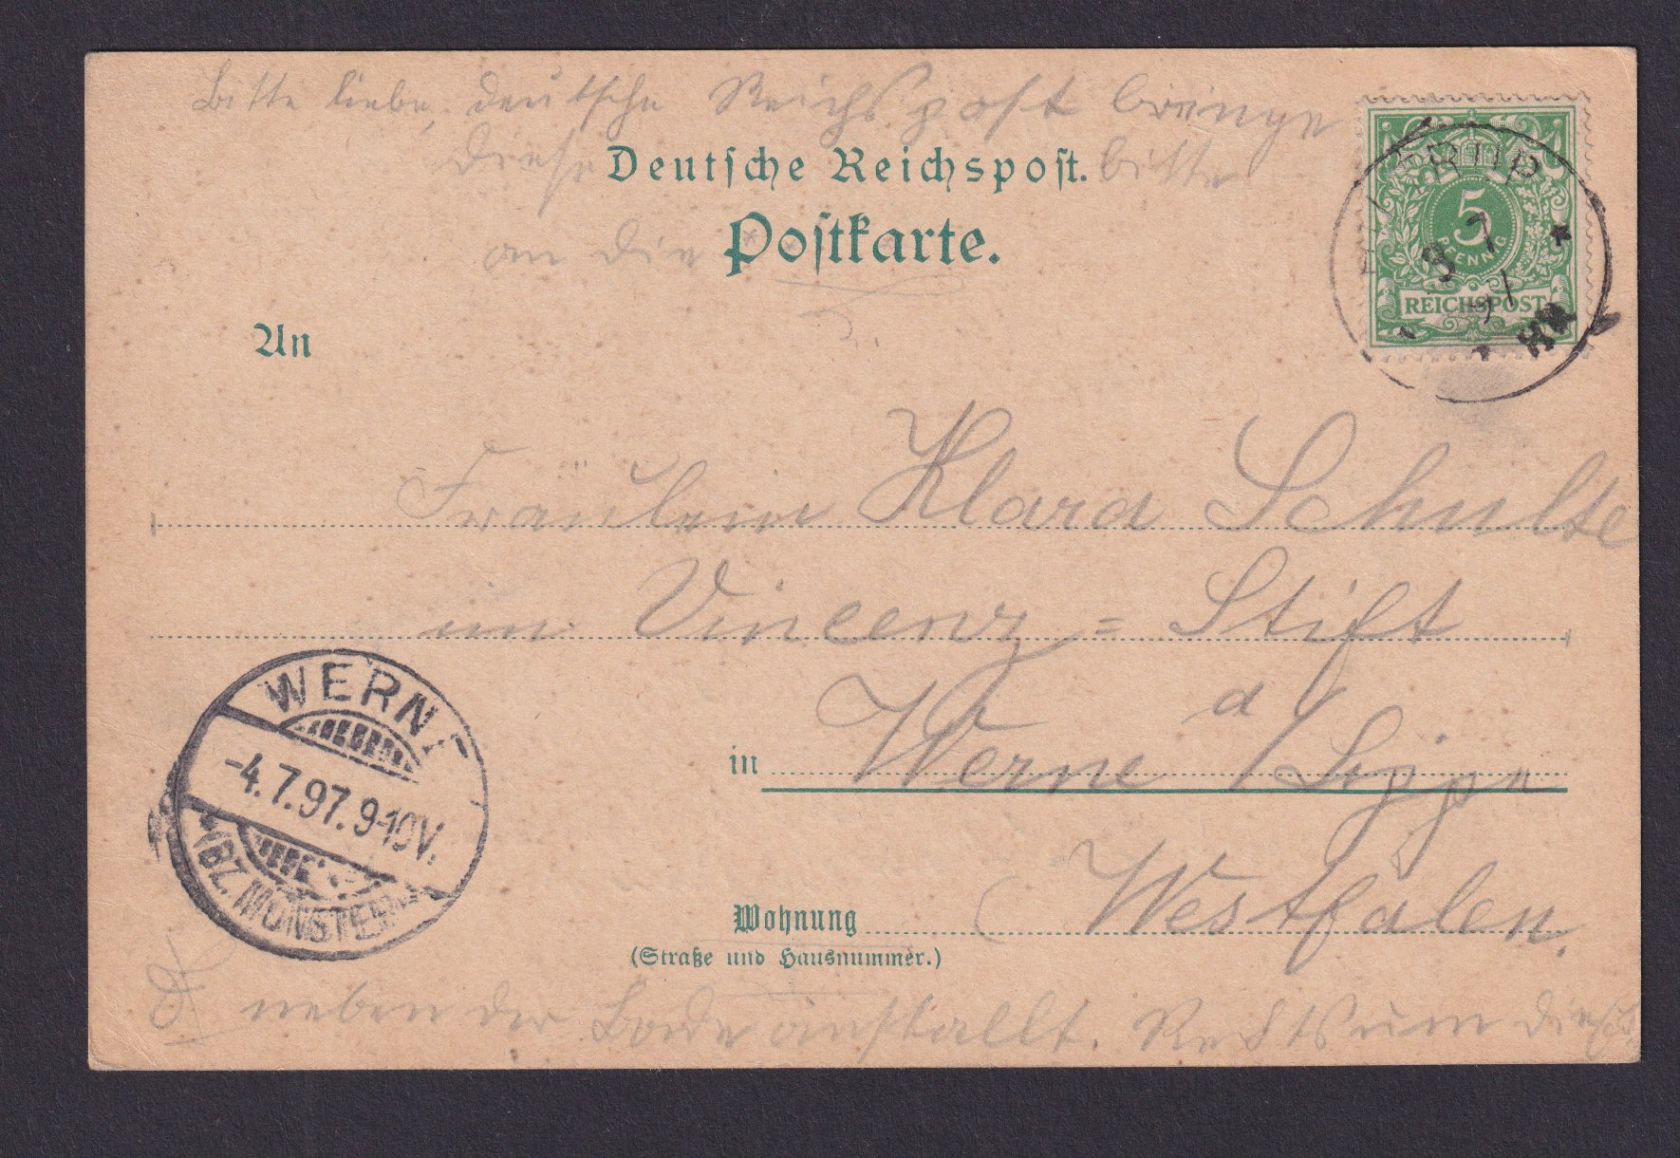 Bitte liebe, deutsche Reichspost bringe
diese bitte
Deutsche Reichspost.
an die Postkarte.
5
PFENNIG
REICHSPOST
3 7
An
Fräulein Klara Schulte
im Vincenz=Stift
in Werne a/Lippe
Westfalen.
Wohnung
(Straße und Hausnummer.)
WERNE
-4.7.97.9-10V.
(BZ. MÜNSTER)
neben der Badeanstallt. Rechts um